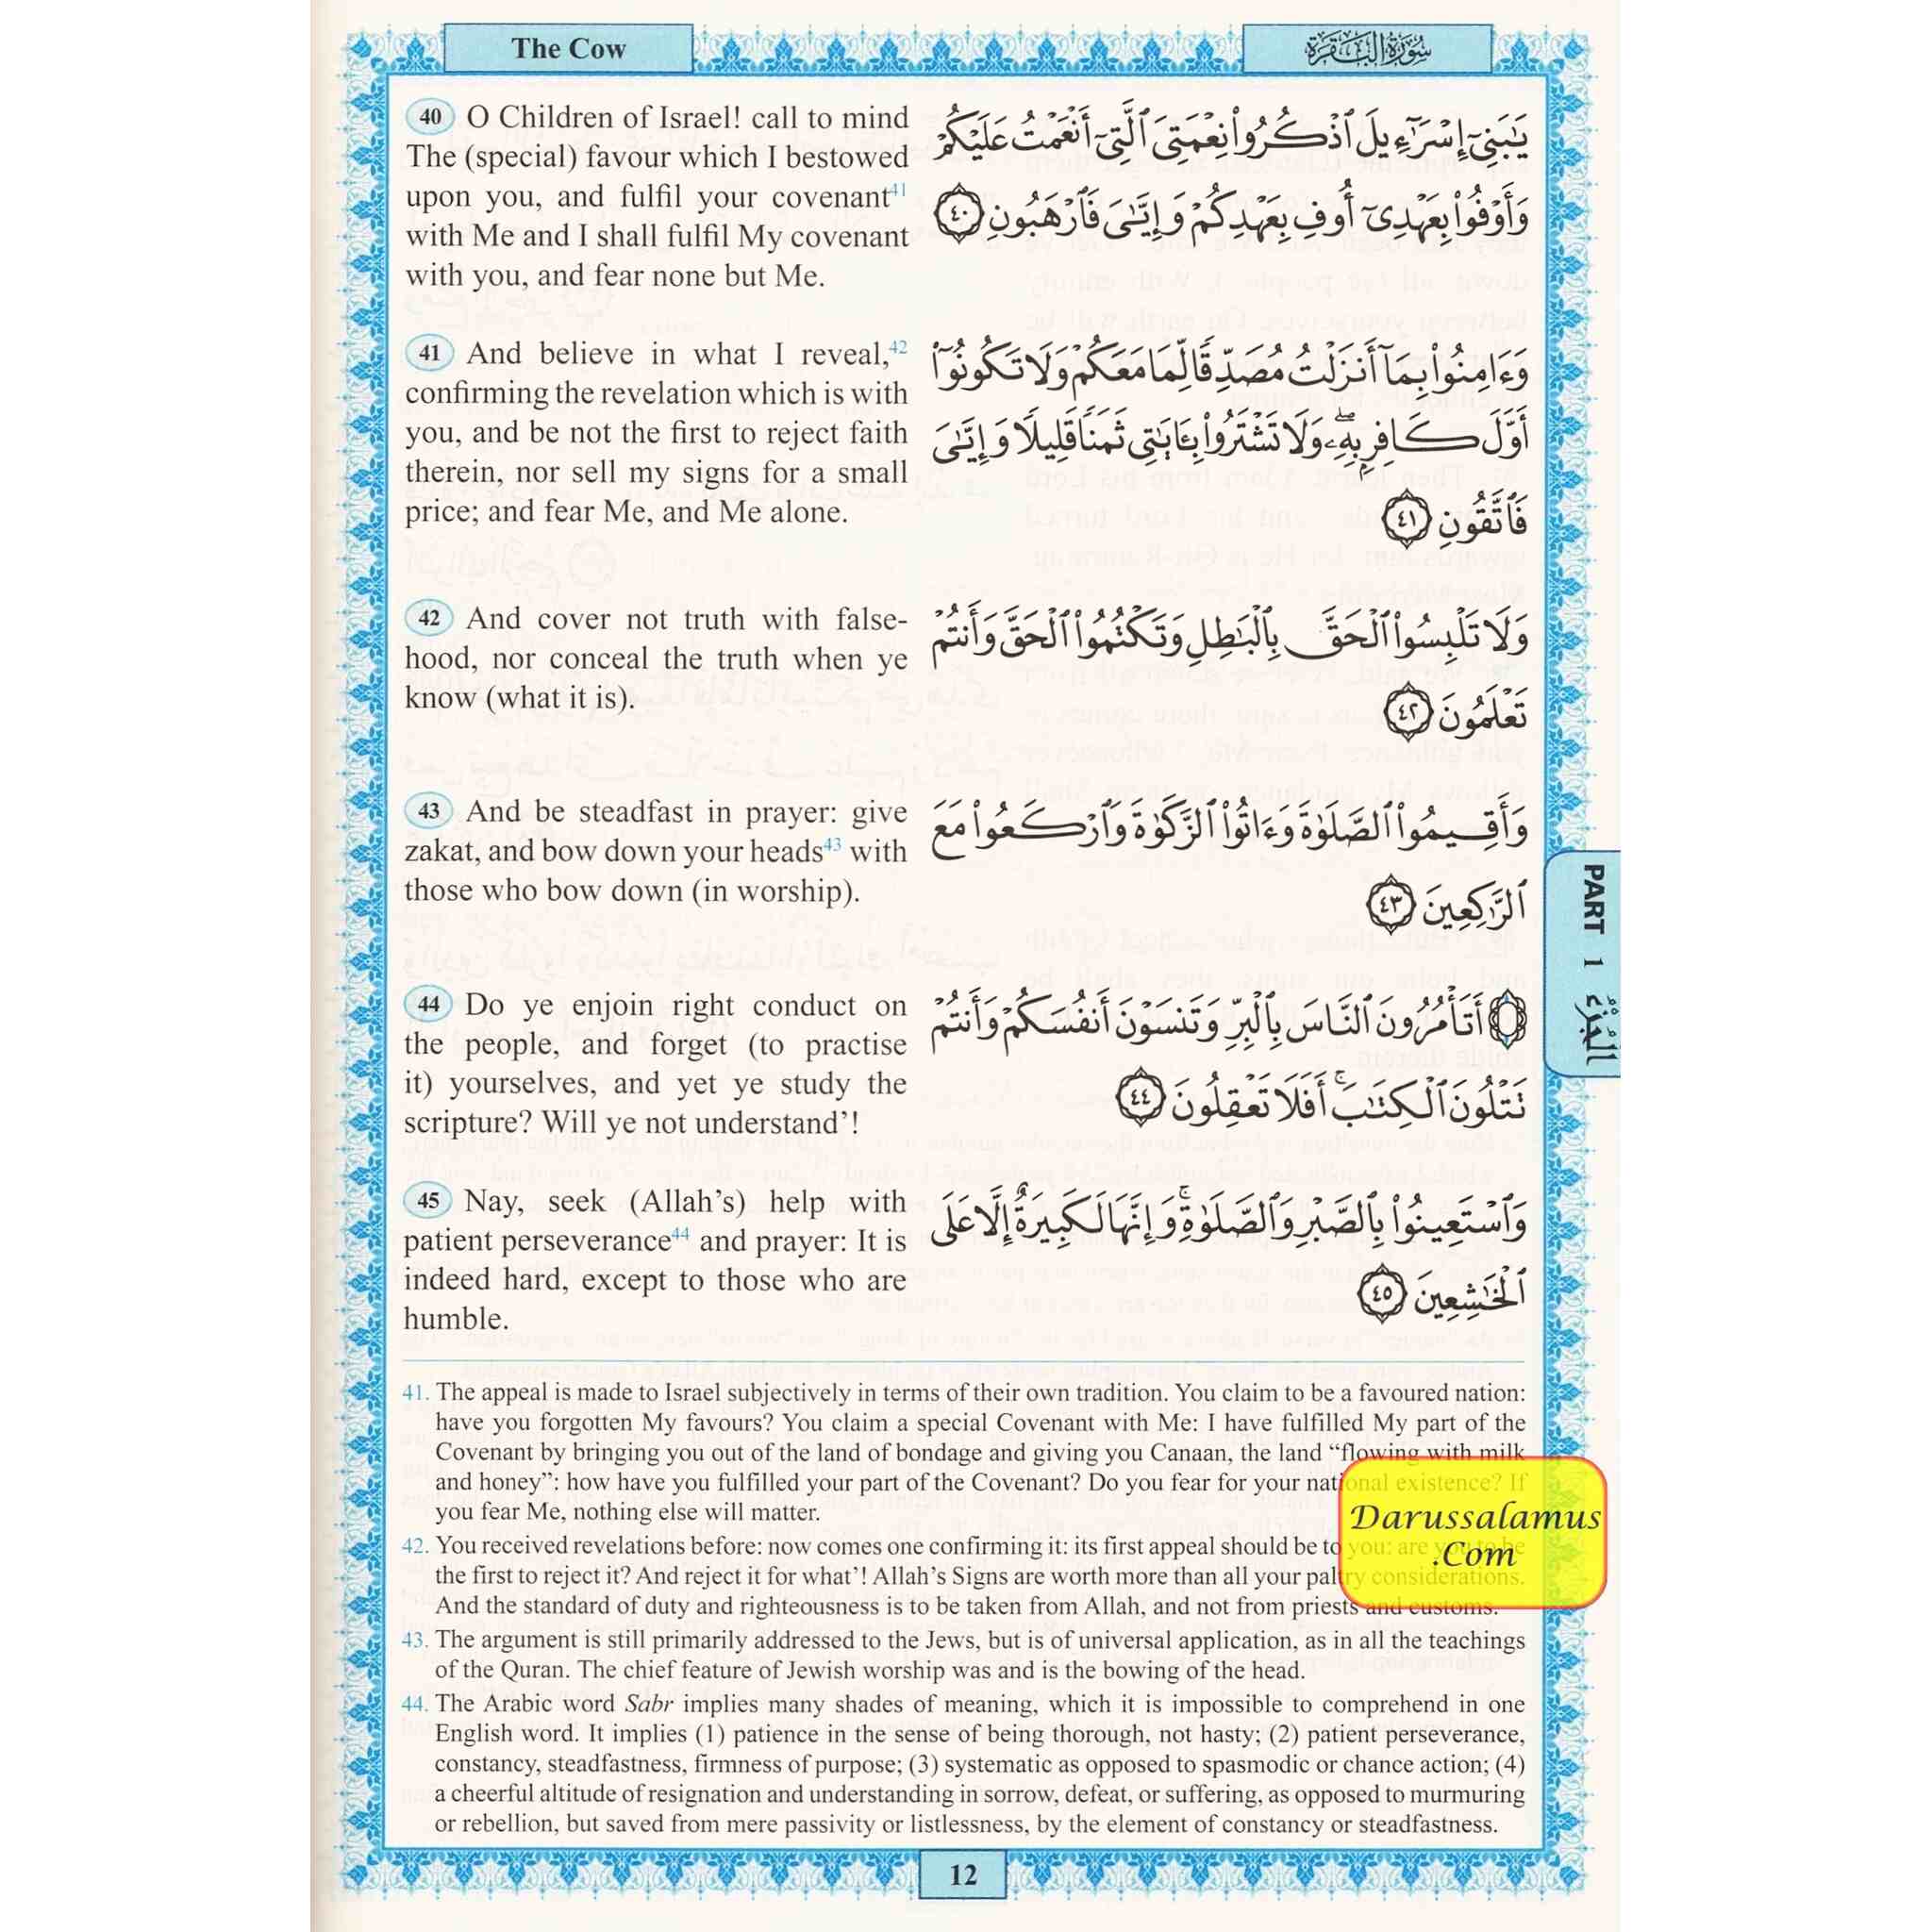 The Cow
سُورَةُ البَقَرَة
40 O Children of Israel! call to mind
The (special) favour which I bestowed
upon you, and fulfil your covenant41
with Me and I shall fulfil My covenant
with you, and fear none but Me.
يَٰبَنِيٓ إِسْرَٰٓءِيلَ ٱذْكُرُوا۟ نِعْمَتِىَ ٱلَّتِىٓ أَنْعَمْتُ عَلَيْكُمْ
وَأَوْفُوا۟ بِعَهْدِىٓ أُوفِ بِعَهْدِكُمْ وَإِيَّٰىَ فَٱرْهَبُونِ ٤٠
41 And believe in what I reveal,42
confirming the revelation which is with
you, and be not the first to reject faith
therein, nor sell my signs for a small
price; and fear Me, and Me alone.
وَءَامِنُوا۟ بِمَآ أَنزَلْتُ مُصَدِّقًا لِّمَا مَعَكُمْ وَلَا تَكُونُوٓا۟
أَوَّلَ كَافِرٍۭ بِهِۦۖ وَلَا تَشْتَرُوا۟ بِـَٔايَٰتِى ثَمَنًا قَلِيلًا وَإِيَّٰىَ
فَٱتَّقُونِ ٤١
42 And cover not truth with false-
hood, nor conceal the truth when ye
know (what it is).
وَلَا تَلْبِسُوا۟ ٱلْحَقَّ بِٱلْبَٰطِلِ وَتَكْتُمُوا۟ ٱلْحَقَّ وَأَنتُمْ
تَعْلَمُونَ ٤٢
43 And be steadfast in prayer: give
zakat, and bow down your heads43 with
those who bow down (in worship).
وَأَقِيمُوا۟ ٱلصَّلَوٰةَ وَءَاتُوا۟ ٱلزَّكَوٰةَ وَٱرْكَعُوا۟ مَعَ
ٱلرَّٰكِعِينَ ٤٣
44 Do ye enjoin right conduct on
the people, and forget (to practise
it) yourselves, and yet ye study the
scripture? Will ye not understand’!
۞ أَتَأْمُرُونَ ٱلنَّاسَ بِٱلْبِرِّ وَتَنسَوْنَ أَنفُسَكُمْ وَأَنتُمْ
تَتْلُونَ ٱلْكِتَٰبَۚ أَفَلَا تَعْقِلُونَ ٤٤
45 Nay, seek (Allah’s) help with
patient perseverance44 and prayer: It is
indeed hard, except to those who are
humble.
وَٱسْتَعِينُوا۟ بِٱلصَّبْرِ وَٱلصَّلَوٰةِۚ وَإِنَّهَا لَكَبِيرَةٌ إِلَّا عَلَى
ٱلْخَٰشِعِينَ ٤٥
PART 1 الجُزْءُ
41. The appeal is made to Israel subjectively in terms of their own tradition. You claim to be a favoured nation:
have you forgotten My favours? You claim a special Covenant with Me: I have fulfilled My part of the
Covenant by bringing you out of the land of bondage and giving you Canaan, the land “flowing with milk
and honey”: how have you fulfilled your part of the Covenant? Do you fear for your national existence? If
you fear Me, nothing else will matter.
42. You received revelations before: now comes one confirming it: its first appeal should be to you: are you to be
the first to reject it? And reject it for what’! Allah’s Signs are worth more than all your paltry considerations.
And the standard of duty and righteousness is to be taken from Allah, and not from priests and customs.
43. The argument is still primarily addressed to the Jews, but is of universal application, as in all the teachings
of the Quran. The chief feature of Jewish worship was and is the bowing of the head.
44. The Arabic word Sabr implies many shades of meaning, which it is impossible to comprehend in one
English word. It implies (1) patience in the sense of being thorough, not hasty; (2) patient perseverance,
constancy, steadfastness, firmness of purpose; (3) systematic as opposed to spasmodic or chance action; (4)
a cheerful altitude of resignation and understanding in sorrow, defeat, or suffering, as opposed to murmuring
or rebellion, but saved from mere passivity or listlessness, by the element of constancy or steadfastness.
Darussalamus
.Com
12